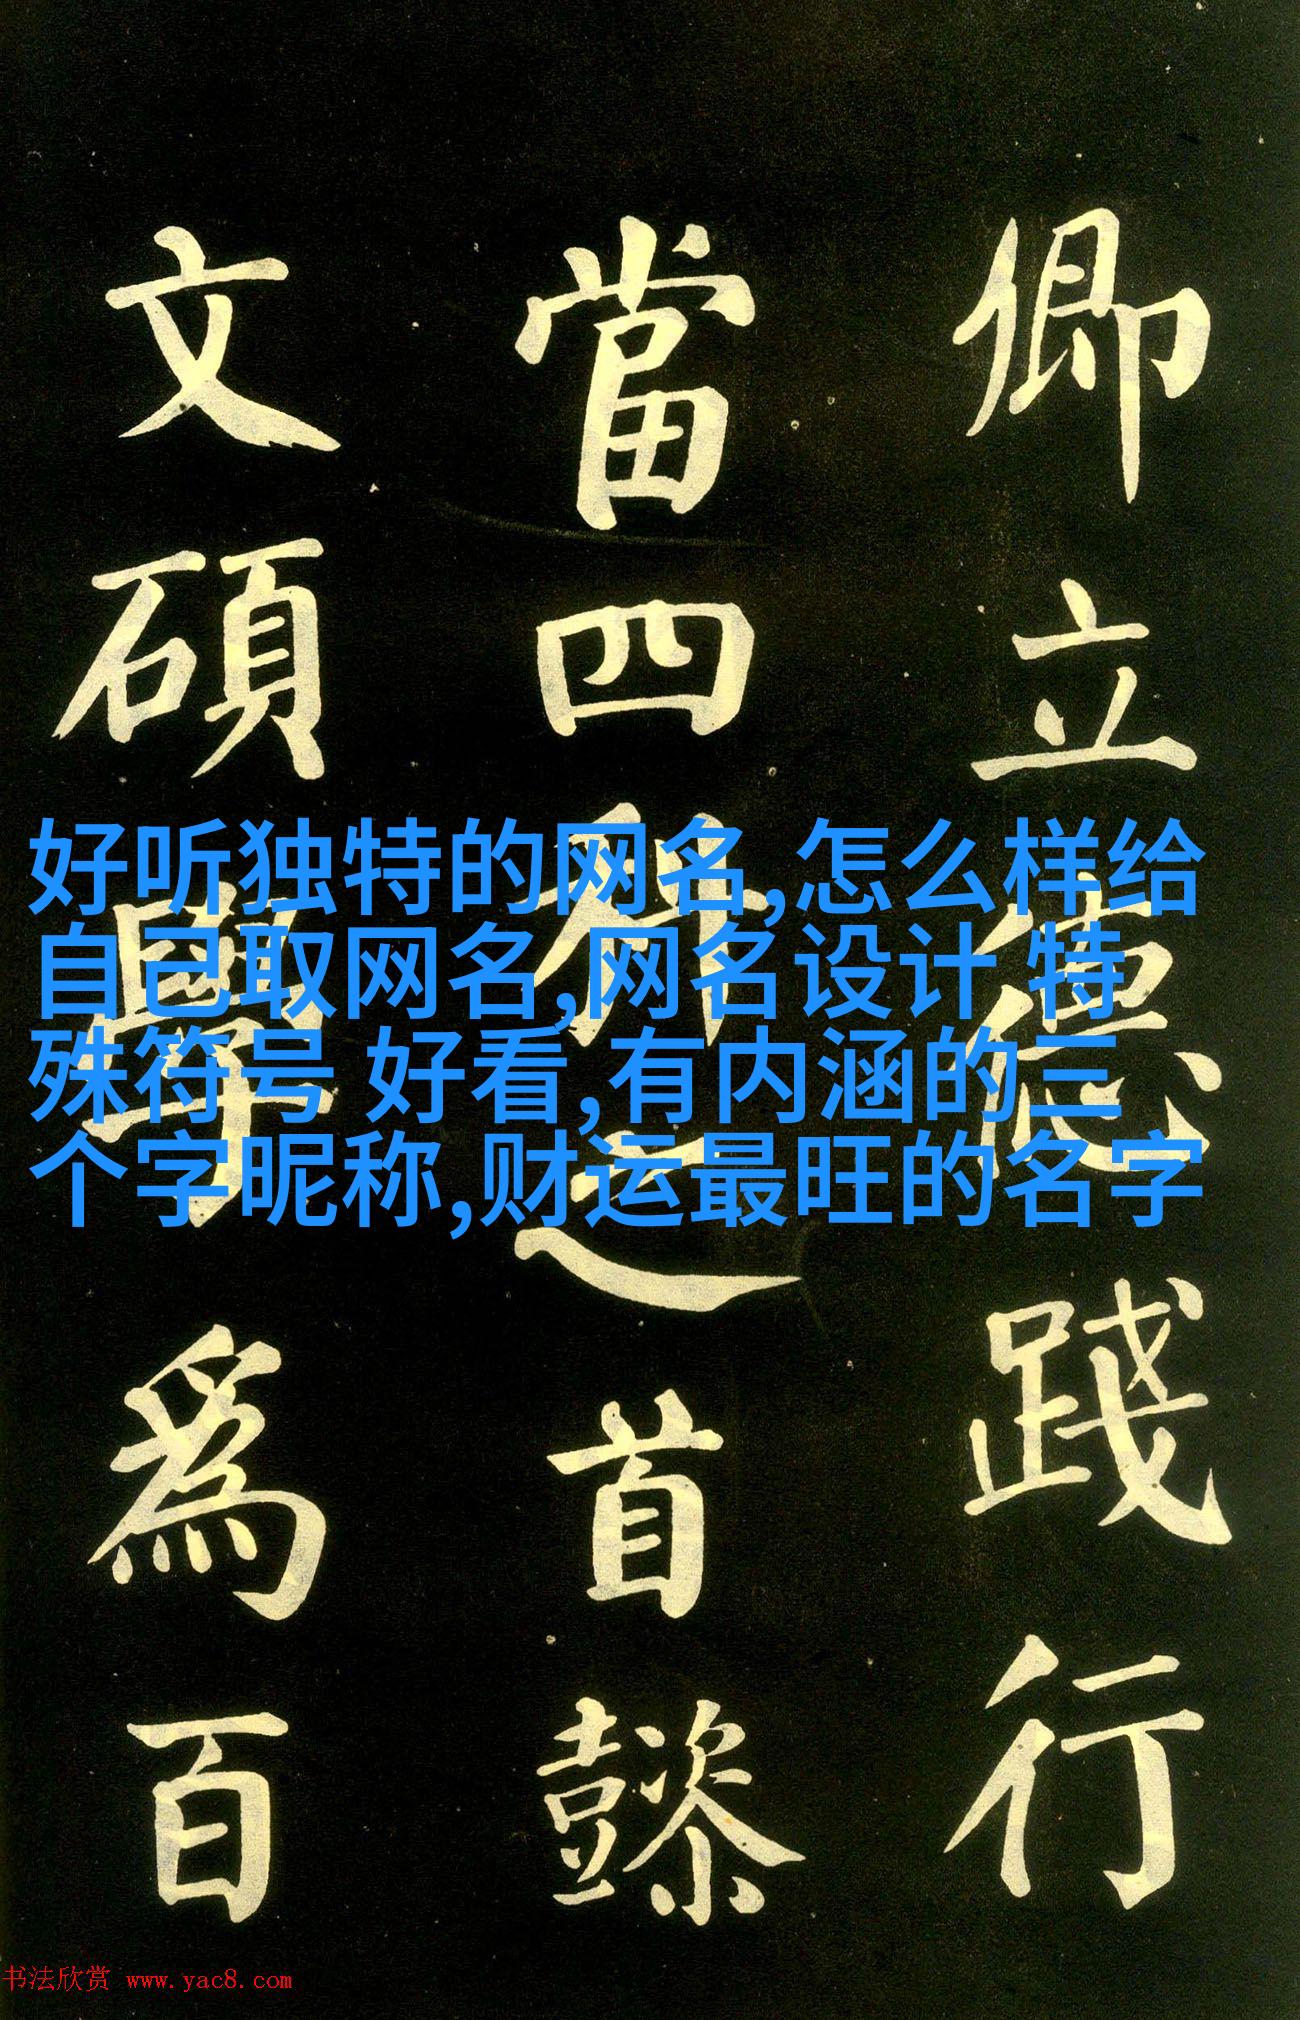 卿立德踐行
當四科之首懿
文碩學為百
好听独特的网名,怎么样给
自己取网名,网名设计 特
殊符号 好看,有内涵的三
个字昵称,财运最旺的名字
书法欣赏 www.yac8.com